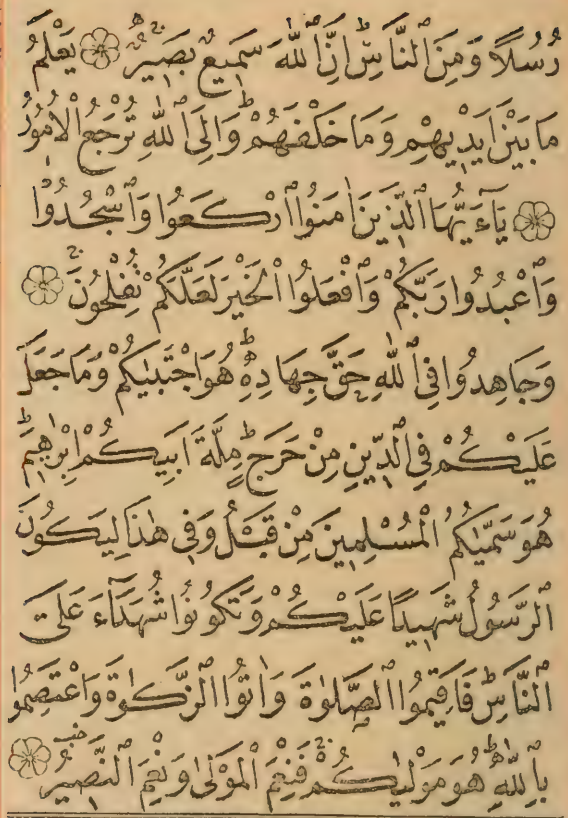 رُسُلًا وَمِنَ ٱلنَّاسِ ۖ إِنَّ ٱللَّهَ سَمِيعٌ بَصِيرٌ ۝ يَعْلَمُ
مَا بَيْنَ أَيْدِيهِمْ وَمَا خَلْفَهُمْ ۗ وَإِلَى ٱللَّهِ تُرْجَعُ ٱلْأُمُورُ
۝ يَاءَيُّهَا ٱلَّذِينَ اٰمَنُوا ٱرْكَعُوا وَٱسْجُدُوا
وَٱعْبُدُوا رَبَّكُمْ وَٱفْعَلُوا ٱلْخَيْرَ لَعَلَّكُمْ تُفْلِحُونَ ۝
وَجَاهِدُوا فِي ٱللَّهِ حَقَّ جِهَادِهِ ط هُوَ ٱجْتَبٰيكُمْ وَمَا جَعَلَ
عَلَيْكُمْ فِي ٱلدِّينِ مِنْ حَرَجٍ ط مِلَّةَ اَبِيكُمْ اِبْرٰهِيمَ ط
هُوَ سَمّٰيكُمُ ٱلْمُسْلِمِينَ مِنْ قَبْلُ وَفِي هٰذَا لِيَكُونَ
ٱلرَّسُولُ شَهِيدًا عَلَيْكُمْ وَتَكُونُوا شُهَدَآءَ عَلَى
ٱلنَّاسِ ط فَاَقِيمُوا ٱلصَّلٰوةَ وَاٰتُوا ٱلزَّكٰوةَ وَٱعْتَصِمُوا
بِٱللَّهِ ط هُوَ مَوْلٰيكُمْ فَنِعْمَ ٱلْمَوْلٰى وَنِعْمَ ٱلنَّصِيرُ ۝